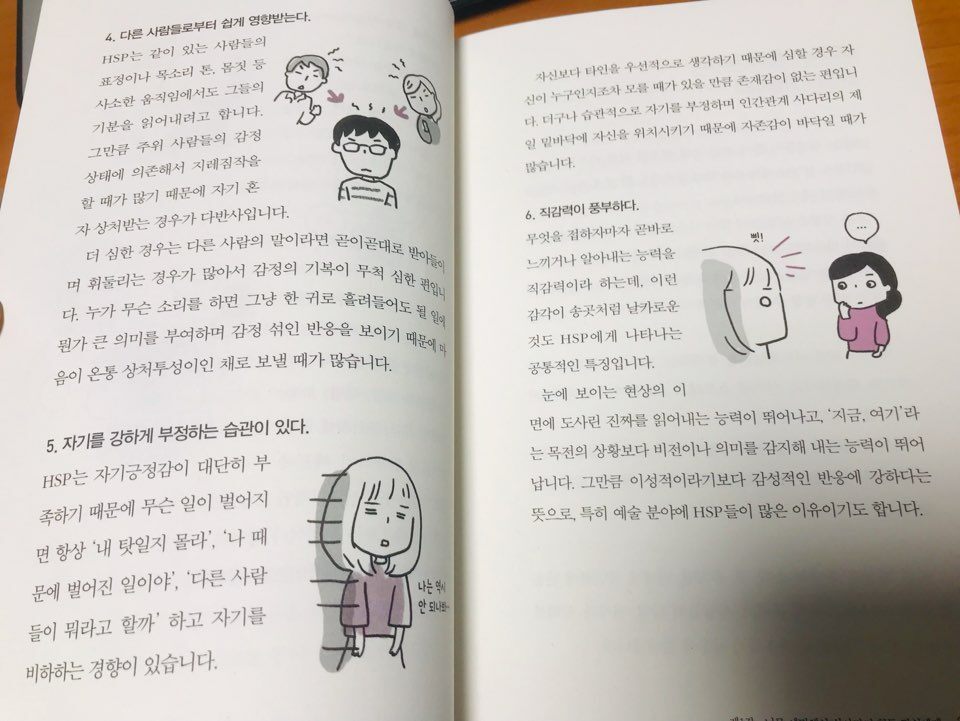 4. 다른 사람들로부터 쉽게 영향받는다.
HSP는 같이 있는 사람들의
표정이나 목소리 톤, 몸짓 등
사소한 움직임에서도 그들의
기분을 읽어내려고 합니다.
그만큼 주위 사람들의 감정
상태에 의존해서 지레짐작을
할 때가 많기 때문에 자기 혼
자 상처받는 경우가 다반사입니다.
더 심한 경우는 다른 사람의 말이라면 곧이곧대로 받아들이
며 휘둘리는 경우가 많아서 감정의 기복이 무척 심한 편입니
다. 누가 무슨 소리를 하면 그냥 한 귀로 흘려들어도 될 일에
뭔가 큰 의미를 부여하며 감정 섞인 반응을 보이기 때문에 마
음이 온통 상처투성이인 채로 보낼 때가 많습니다.
5. 자기를 강하게 부정하는 습관이 있다.
HSP는 자기긍정감이 대단히 부
족하기 때문에 무슨 일이 벌어지
면 항상 ‘내 탓일지 몰라’, ‘나 때
문에 벌어진 일이야’, ‘다른 사람
들이 뭐라고 할까’ 하고 자기를
비하하는 경향이 있습니다.
나는 역시
안 되나봐…
자신보다 타인을 우선적으로 생각하기 때문에 심할 경우 자
신이 누구인지조차 모를 때가 있을 만큼 존재감이 없는 편입니
다. 더구나 습관적으로 자기를 부정하며 인간관계 사다리의 제
일 밑바닥에 자신을 위치시키기 때문에 자존감이 바닥일 때가
많습니다.
6. 직감력이 풍부하다.
무엇을 접하자마자 곧바로
느끼거나 알아내는 능력을
직감력이라 하는데, 이런
감각이 송곳처럼 날카로운
것도 HSP에게 나타나는
공통적인 특징입니다.
눈에 보이는 현상의 이
면에 도사린 진짜를 읽어내는 능력이 뛰어나고, ‘지금, 여기’라
는 목전의 상황보다 비전이나 의미를 감지해 내는 능력이 뛰어
납니다. 그만큼 이성적이라기보다 감성적인 반응에 강하다는
뜻으로, 특히 예술 분야에 HSP들이 많은 이유이기도 합니다.
삣!
…